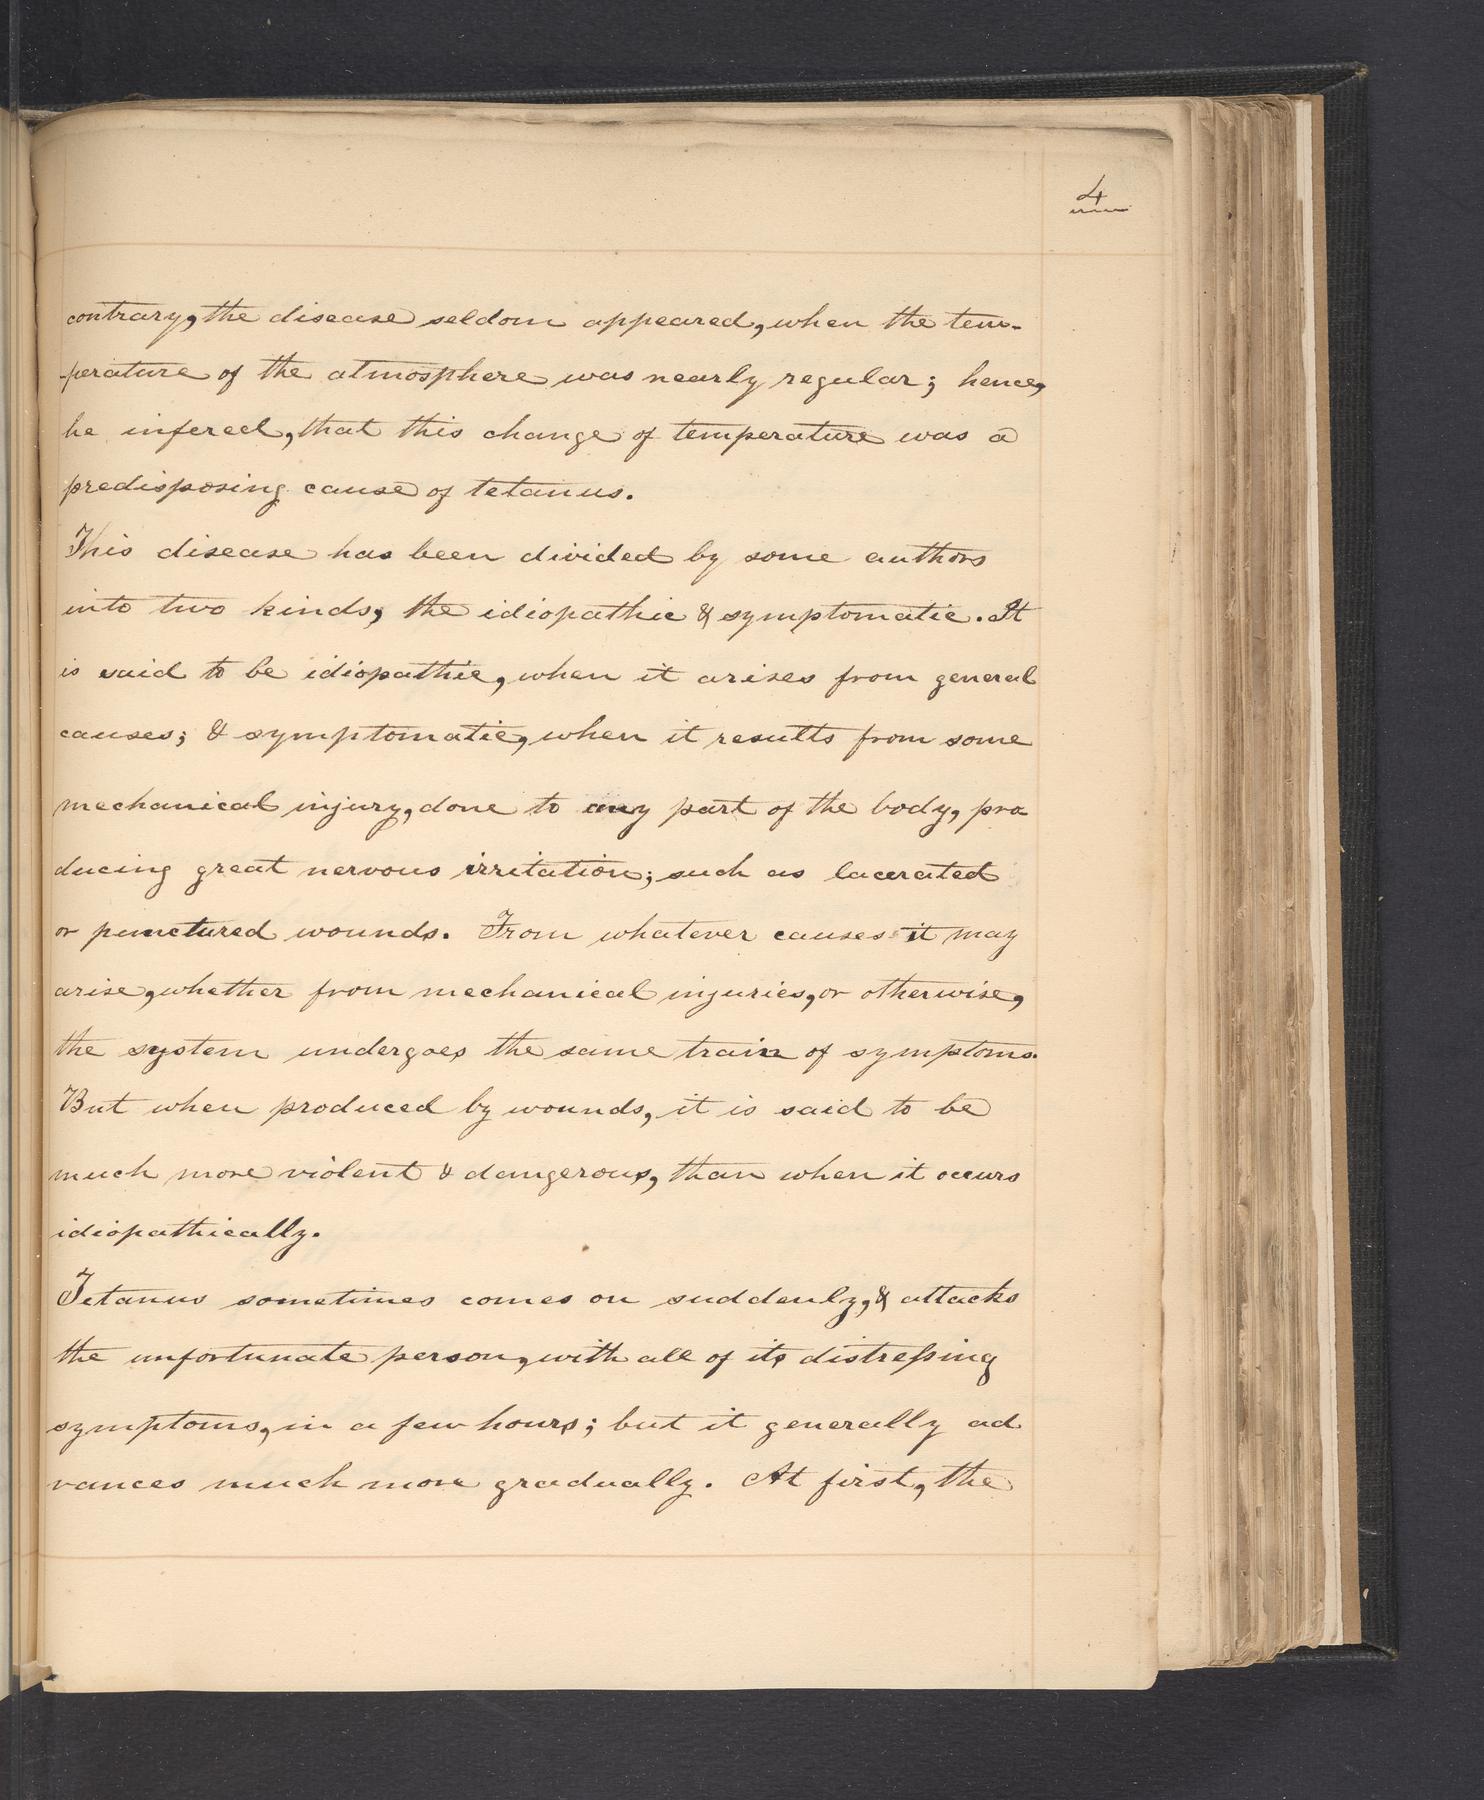 4
contrary, the disease seldom appeared, when the tem-
-perature of the atmosphere was nearly regular; hence,
he infered, that this change of temperature was a
predisposing cause of tetanus.
This disease has been divided by some authors
into two kinds, the idiopathic & symptomatic. It
is said to be idiopathic, when it arises from general
causes; & symptomatic, when it results from some
mechanical injury, done to any part of the body, pro
ducing great nervous irritation; such as lacerated
or punctured wounds. From whatever causes it may
arise, whether from mechanical injuries, or otherwise,
the system undergoes the same train of symptoms.
But when produced by wounds, it is said to be
much more violent & dangerous, than when it occurs
idiopathically.
Tetanus sometimes comes on suddenly, & attacks
the unfortunate person, with all of its distreſsing
symptoms, in a few hours; but it generally ad
vances much more gradually. At first, the